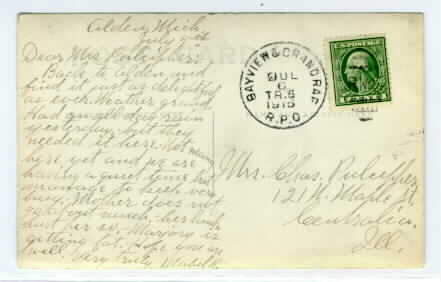 Alden, Mich
July 5th
Dear Mrs. Pulcipher:
Back to Alden and
find it just as delightful
as ever. Weather grand.
Had quite a dog rain
yesterday, but they
needed it here. Not
here yet and we are
having a quiet time but
manage to keep very
busy. Mother does not
get out much,
Marjory is
getting fat. Hope you are
well. Very truly
BAYVIEW & GRAND RAP.
JUL
6
TR.6
1915
R.P.O.
U.S. POSTAGE
Mrs. Chas. Pulcipher
1214. Maple St.
Centralia,
Ill.